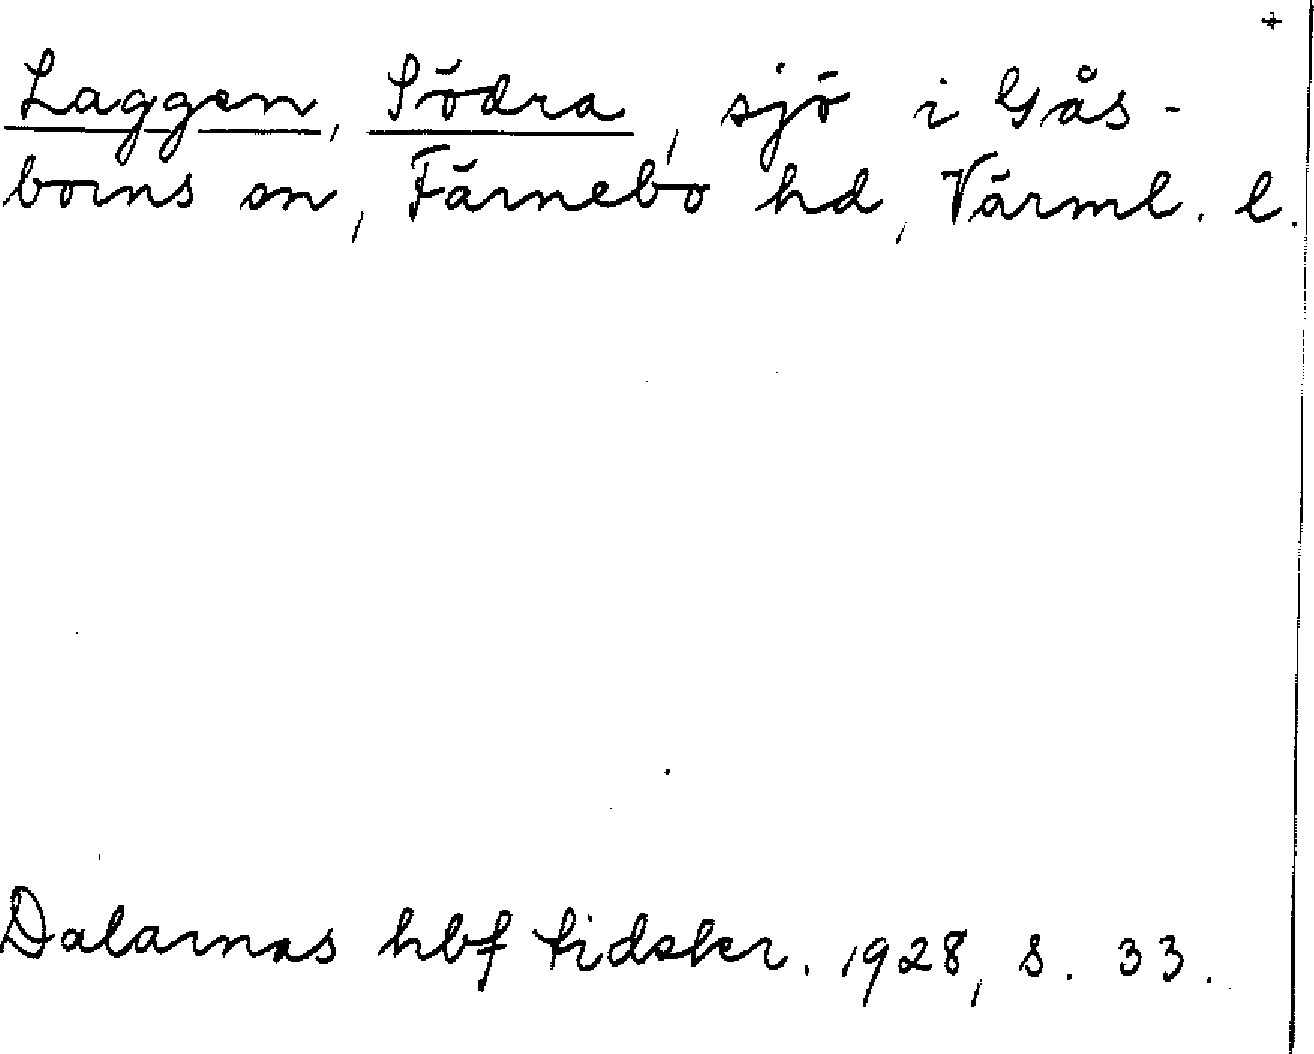 +
Laggen, Södra, sjö i Gås-
borns sn, Färnebo hd, Värml. l.
Dalarnas hbf tidskr. 1928, s. 33.